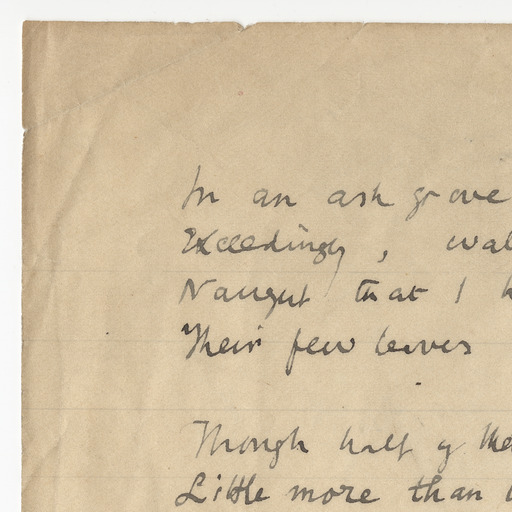 In an ash grove
Exceedingly, wal
Naught that I k
Their few leaves
Though half of the
Little more than